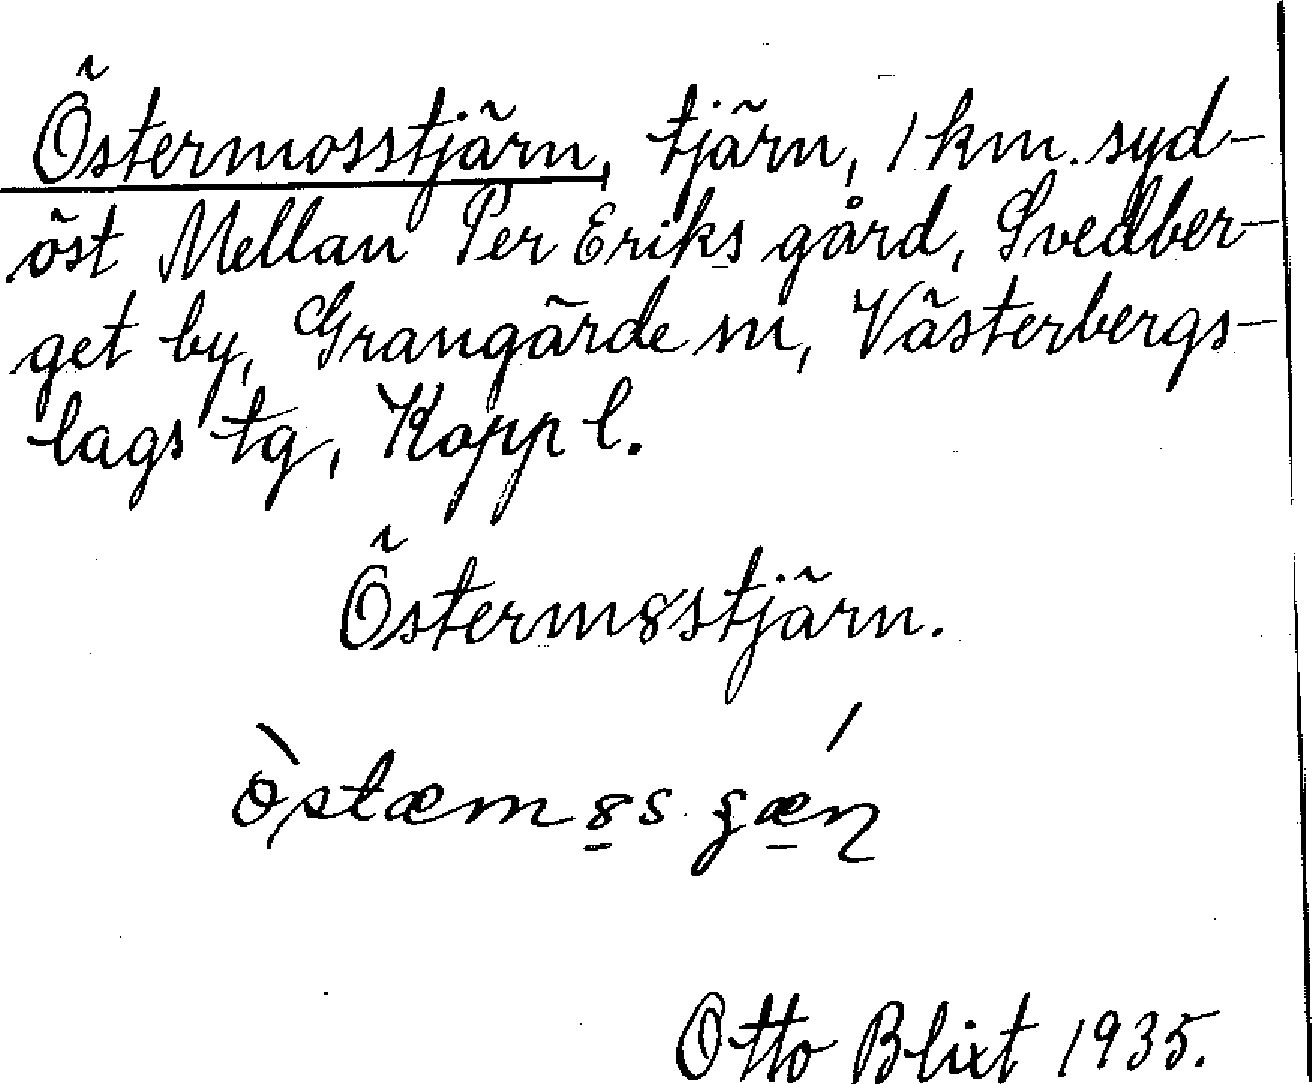 Östermosstjärn, tjärn, 1 km. syd-
öst Mellan Per Eriks gård, Svedber-
get by, Grangärde sn, Västerbergs-
lags tg, Kopp l.
Östermȣstjärn.
Otto Blixt 1935.